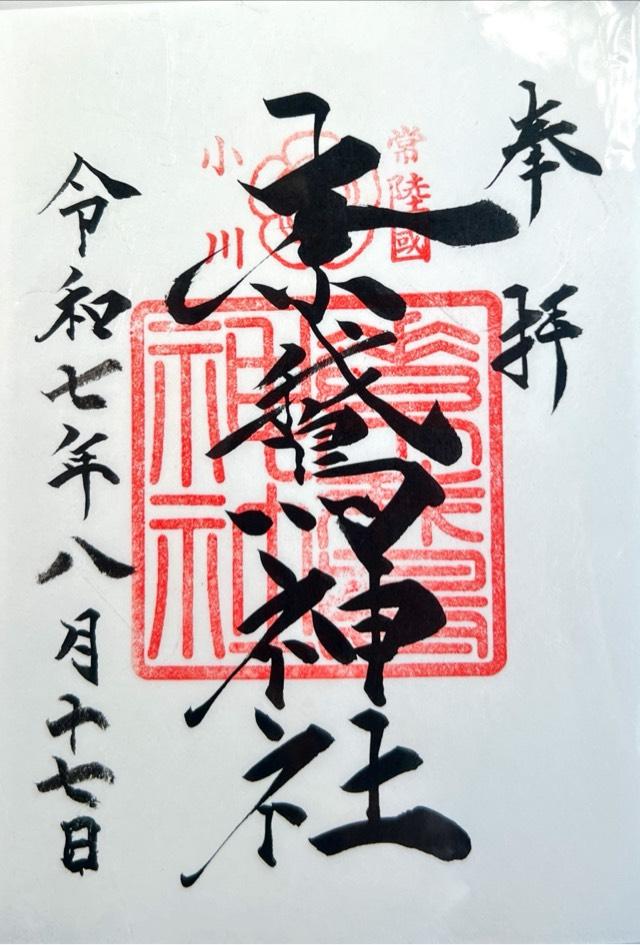 奉拝
常陸國
小川
素鵞神社
素鵞
神社
令和七年八月十七日